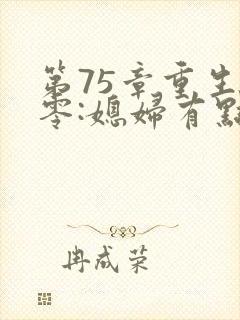 第75章重生
零:媳婦有點
冉成荣